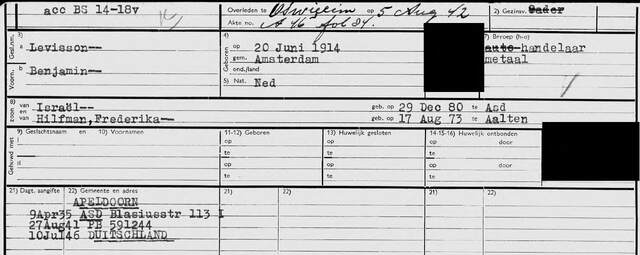 acc BS 14-18v
Overleden te Oswiecim op 5 Aug 42
Akte no. A 46 fol 84.
2) Gezinsv. Vader
3) Levisson--
b Benjamin--
Gesl.nm. Voorn.
4) op 20 Juni 1914
gem. Amsterdam
ond./land
5) Nat. Ned
7) Beroep (h-o)
auto handelaar
metaal
zoon 8) van Israël-- geb. op 29 Dec 80 te Asd
en van Hilfman,Frederika-- geb. op 17 Aug 73 te Aalten
Gehuwd met
9) Geslachtsnaam en 10) Voornamen
11-12) Geboren
13) Huwelijk gesloten
14-15-16) Huwelijk ontbonden
op op op door
te te te
op op op door
te te te
21) Dagt. aangifte 22) Gemeente en adres 21) 22) 21) 22)
APELDOORN
9Apr35 ASD Blasiusstr 113 I
27Aug41 PB 591244
10Jul46 DUITSCHLAND